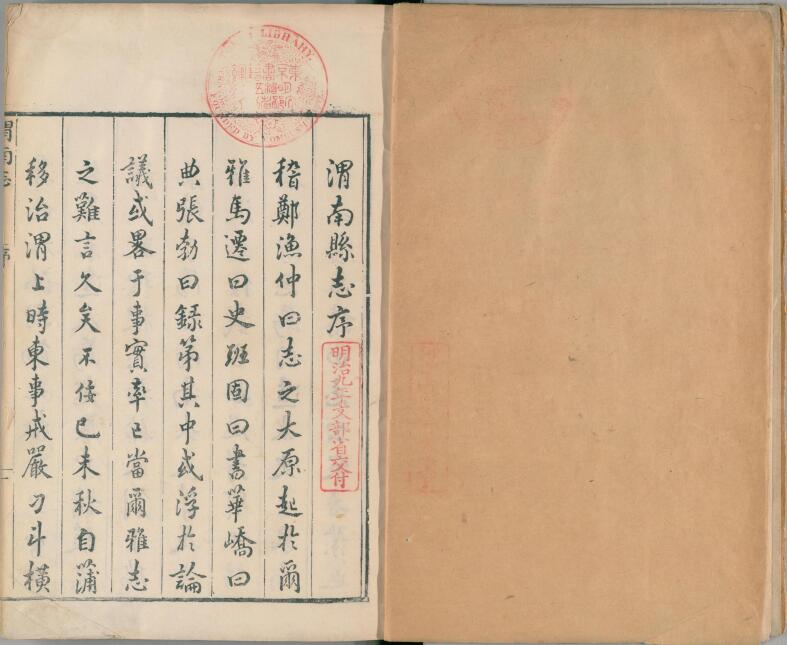 渭南縣志序
稽鄭漁仲曰志之大原起於爾
雅馬遷曰史班固曰書華嶠曰
典張勃曰録第其中或浮於論
議或畧于事實率已當爾雅志
之難言久矣不佞已未秋自蒲
移治渭上時東事戒嚴刀斗橫
渭南志
序
明治九年文部省交付
LIBRARY